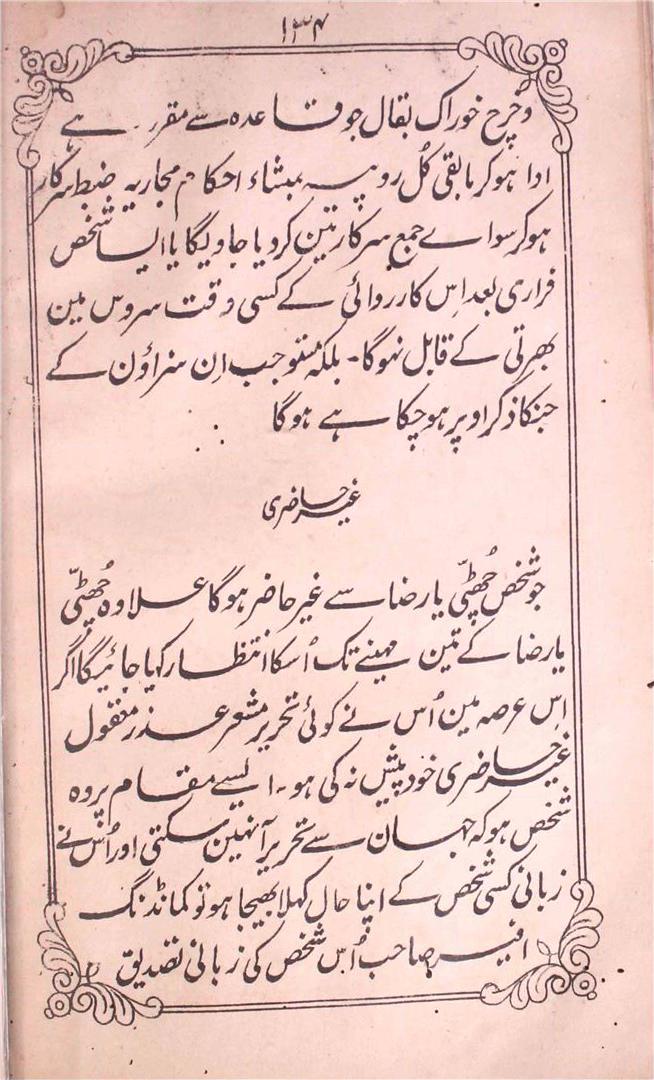 ۱۳۴
و خرچ خوراک بقال جو قاعدہ سے مقرر ہے
ادا ہوکر مابقی کُل روپیہ بمنشاء احکام مجاریہ ضبط سرکار
ہوکر سواے جمع سرکار مین کردیا جاویگا یا ایسا شخص
فراری بعد اِس کارروائی کے کسی وقت سروس مین
بھرتی کے قابل نہوگا۔ بلکہ مستوجب اِن سزاؤن کے
جنکا ذکر اوپر ہوچکا ہے ہوگا
غیر حاضری
جو شخص چُھٹّی یا رضا سے غیر حاضر ہوگا علاوہ چُھٹّی
یا رضا کے تین مہینے تک اُسکا انتظار کیا جائیگا اگر
اِس عرصہ مین اُس نے کوئی تحریر مشعر عذر معقول
غیر حاضری خود پیش نہ کی ہو۔ ایسے مقام پر وہ
شخص ہو کہ جہان سے تحریر آ نہین سکتی اور اُس نے
زبانی کسی شخص کے اپنا حال کہلا بھیجا ہو تو کمانڈنگ
افیسر صاحب اُس شخص کی زبانی تصدیق